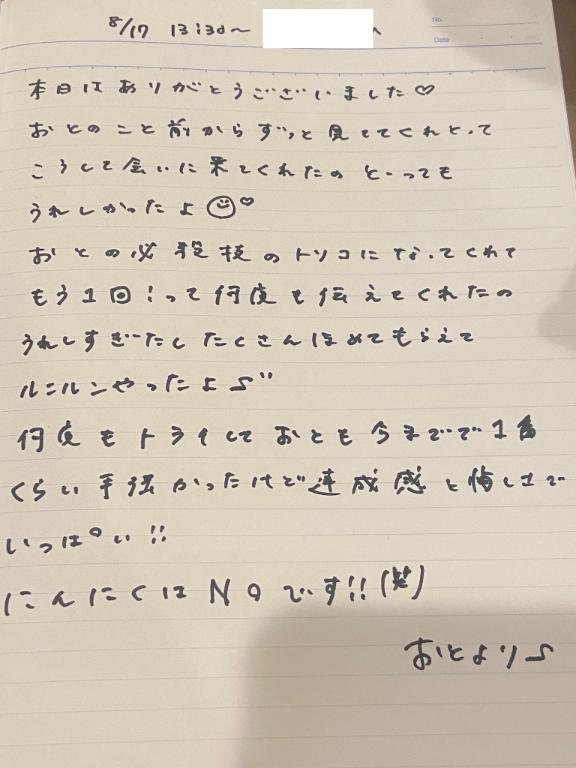 8/17 13:30〜 へ
No.
Date
本日はありがとうございました♡
おとのこと前からずっと見ててくれとって
こうして会いに来てくれたのとーっても
うれしかったよ☺♡
おとの必殺技のトリコになってくれて
もう1回!って何度も伝えてくれたの
うれしすぎたしたくさんほめてもらえて
ルンルンやったよ♪"
何度もトライしておとも今までで1番
くらい手強かったけど達成感と悔しさで
いっぱい!!
にんにくはNOです!!(笑)
おとより♪